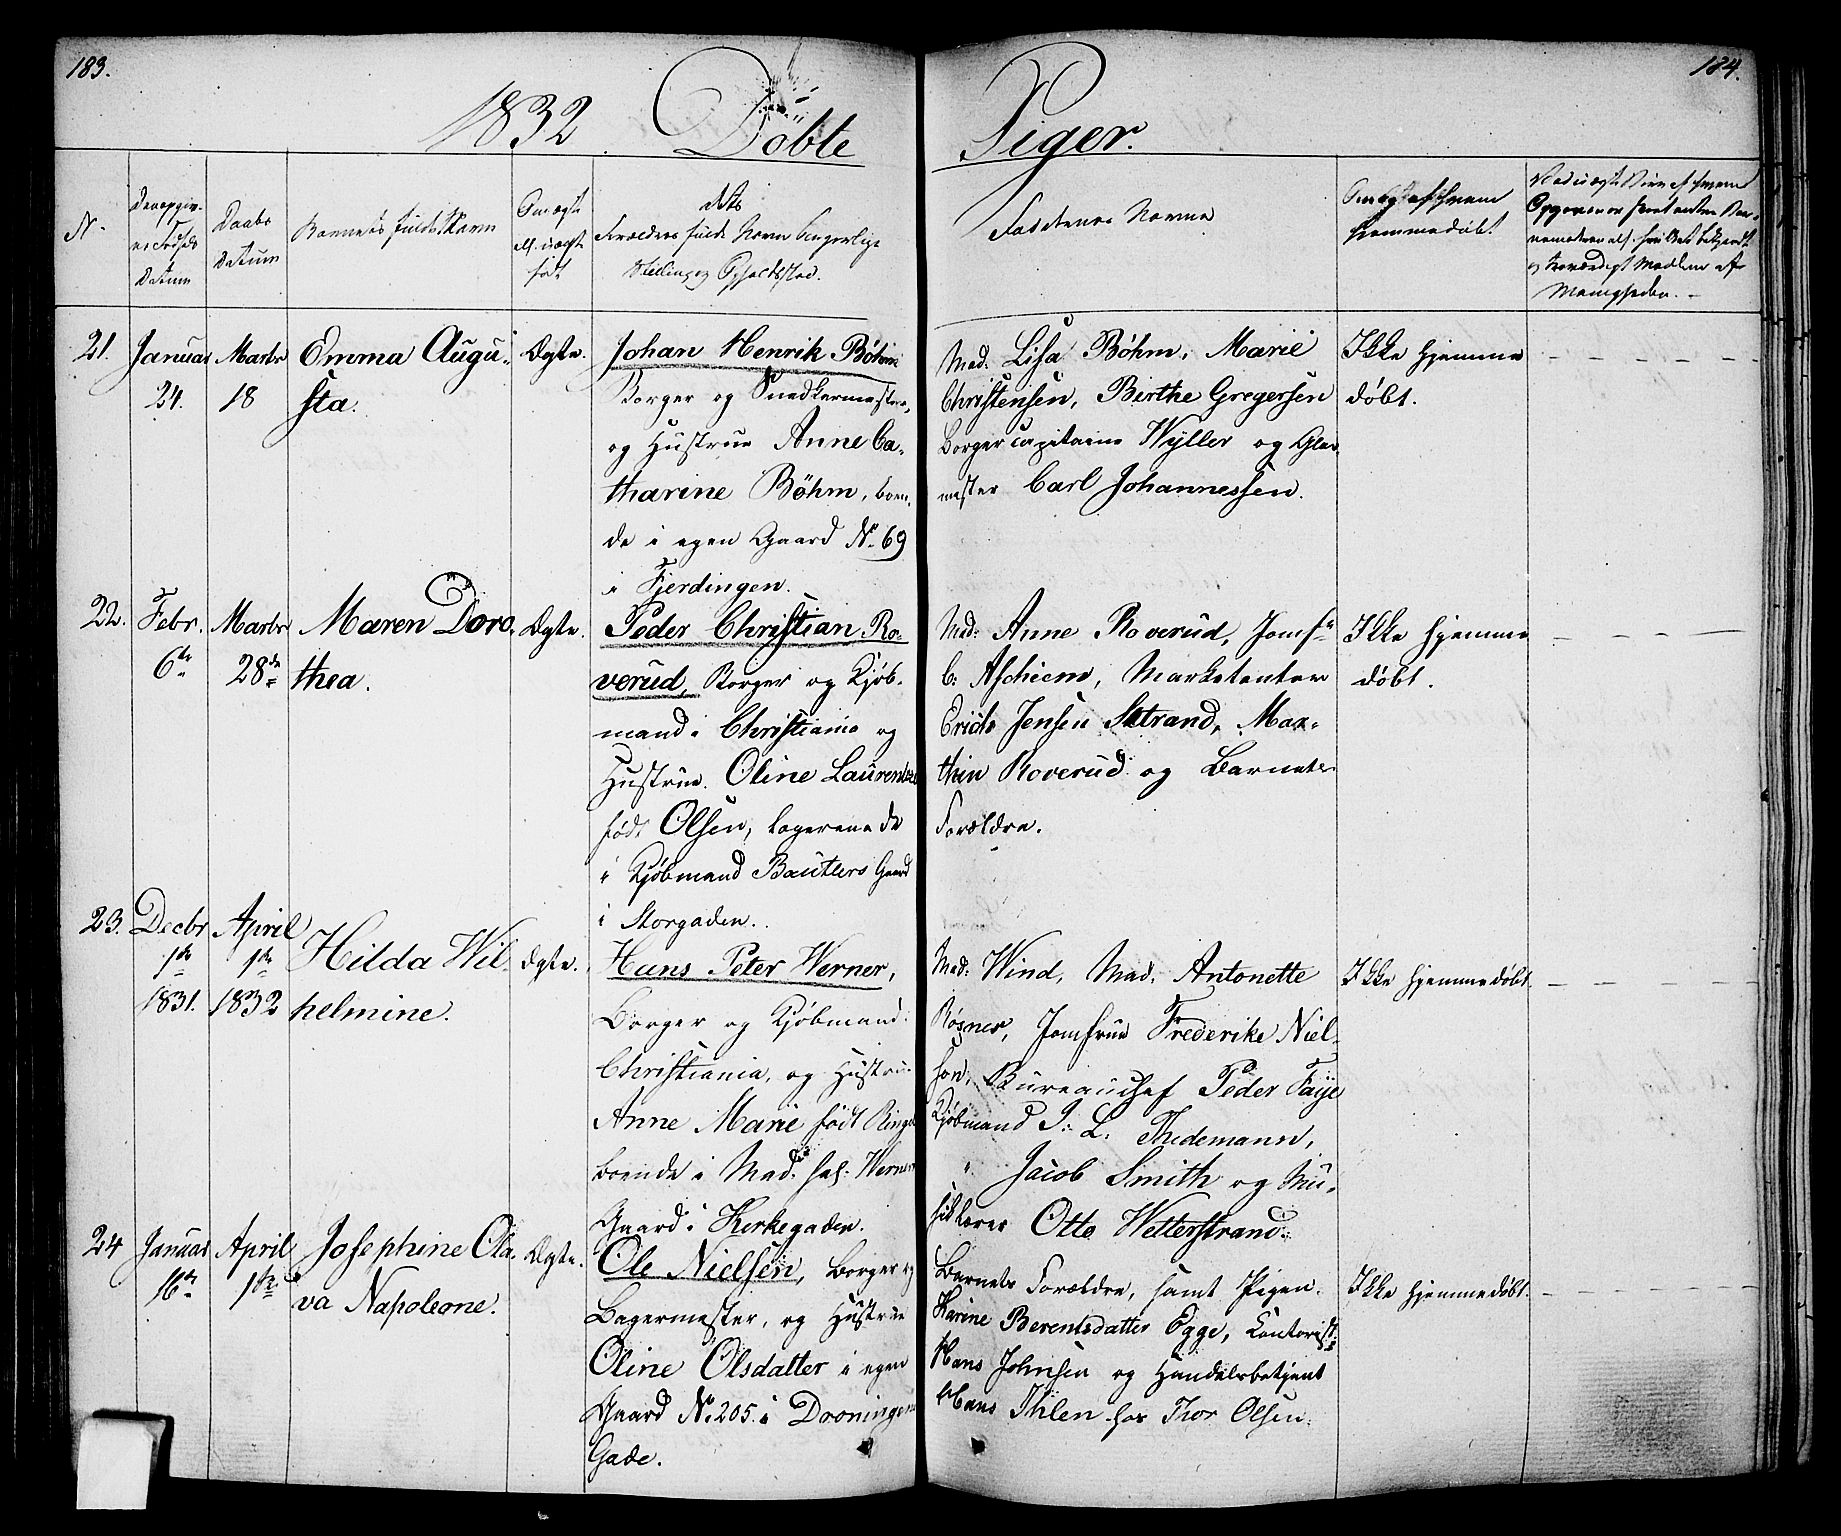 183.
184.
1832 Döbte Piger.
N.
Den opgivne Fødsels Datum
Daabs Datum
Barnets fulde Navn
Om ægte el. uægte født
dets Forældres fulde Navn borgerlige Stilling og Opholdssted.
Faddernes Navne
Om og af hvem hjemmedøbt
21. Januar Martr Emma Augu- Ægte. Johan Henrik Böhm
24. 18 sta. Borger og Snedkermester,
og Hustrue Anne Ca-
tharine Böhm, boen-
de i egen Gaard No. 69
i Fjerdingen.
Mad: Lisa Böhm, Marie
Christensen, Birthe Gregersen
Borgercapitaine Wyller og Glar-
mester Carl Johannessen.
Ikke hjemme
døbt.
22. Febr. Martr Maren Doro- Ægte. Peder Christian Ro-
6te 28de thea. verud, Borger og Kjøb-
mand i Christiania og
Hustrue Oline Laurentze
født Olsen, logerende
i Kjøbmand Bautlers Gaard
i Storgaden.
Mad: Anne Roverud, Jomfr
C: Aschiem, Marketenter
Erich Jensen Strand, Mar-
thin Roverud og Barnets
Forældre.
Ikke hjemme
døbt.
23. Decbr April Hilda Wil- Ægte. Hans Peter Werner,
1ste 1ste helmine. Borger og Kjøbmand i
1831. 1832 Christiania, og Hustrue
Anne Marie født Ring
boende i Mad: sal: Werners
Gaard i Kirkegaden.
Mad: Wind, Mad. Antonette
Rosner, Jomfrue Frederike Niel-
son, Bureauchef Peder Faye
Kjøbmand I: L: Thedemann,
" Jacob Smith og Mu-
siklærer Otto Wetterstrand.
Ikke hjemmedøbt.
24 Januar April Josephine Ola- Ægte. Ole Nielsen, Borger og
16de 1ste va Napoleone. Bagermester, og Hustrue
Oline Olsdatter i egen
Gaard No. 205. i Droningens
Gade.
Barnets Forældre, samt Pigen
Karine Berentsdatter Egge, Contorist
Hans Johnsen og Handelsbetjent
Hans Ihlen hos Thor Olsen.
Ikke hjemmedøbt.